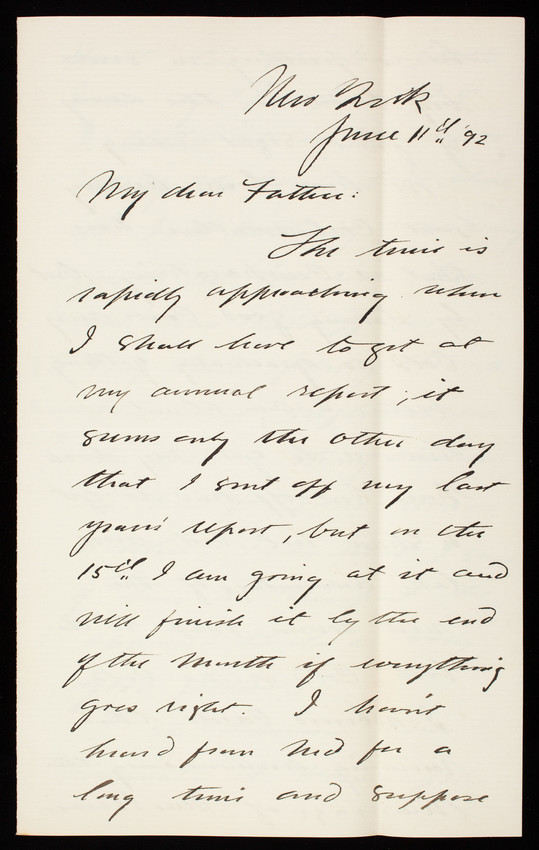 New York
June 11th '92
My dear Father:
The time is
rapidly approaching when
I shall have to get at
my annual report; it
seems only the other day
that I sent off my last
year's report, but on the
15th I am going at it and
will finish it by the end
of the month if everything
goes right. I haven't
heard from Ned for a
long time and suppose